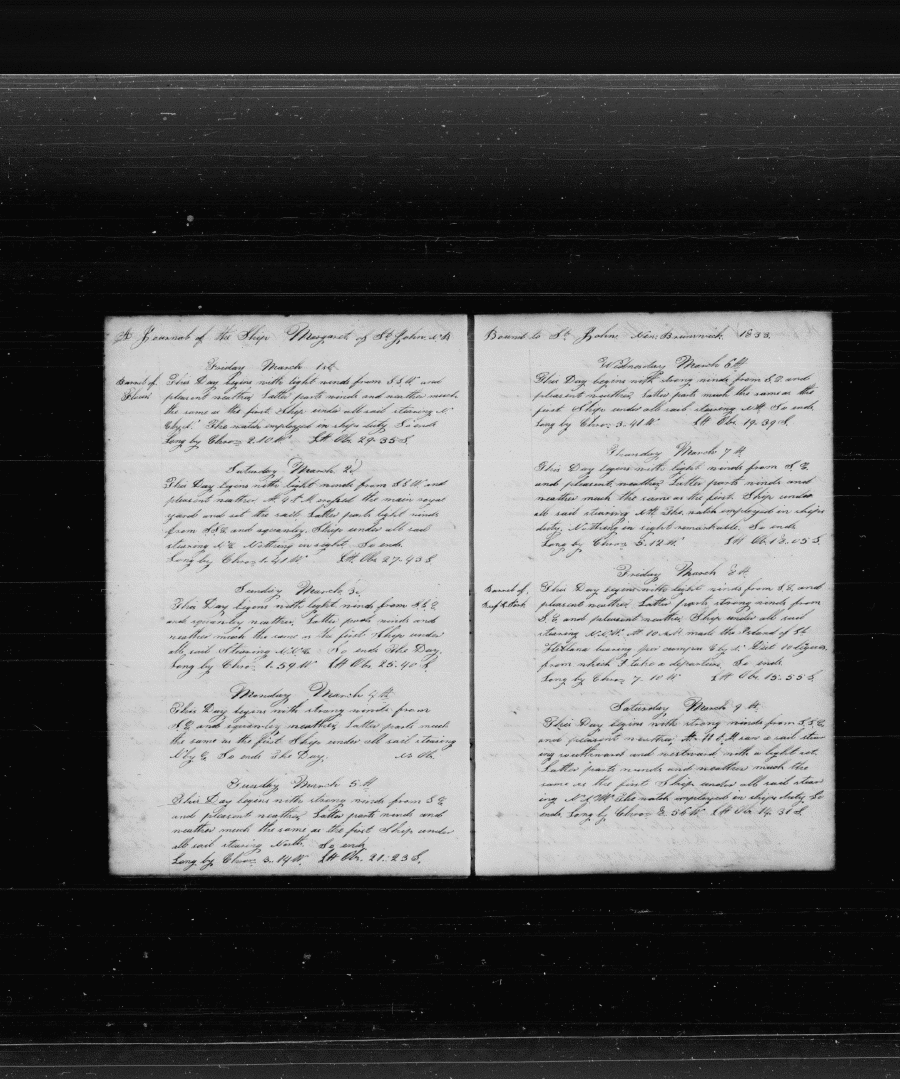 A Journal of the Ship Margaret of St. John N.B
Friday March 1st
Barrel of
Flour
This Day begins with light winds from S.S.W. and
pleasant weather, Latter parts winds and weather much
the same as the first. Ship under all sail steering N
The watch employed in ships duty. So ends
Long by Chro. 2.10 W Lat Ob. 29.35 S
Saturday March 2d
This Day begins with light winds from S.S.W. and
pleasant weather. At 9 A.M. the main royal
yard and set the sail. Latter parts light winds
from S.S.E and squarley. Ship under all sail
steering N.E Nothing in sight. So ends
Long by Chro. 1.41 W Lat Ob. 27.43 S
Sunday March 3d
This Day begins with light winds from S.S.E
and squarley weather, Latter parts winds and
weather much the same as the first Ship under
all sail Steering So ends The Day.
Long by Chro. 1.59 W Lat Ob. 25.40 S
Monday March 4th
This Day begins with strong winds from
S.E and squarley weather, Latter parts much
the same as the first. Ship under all sail steering
N by E. So ends The Day. No Ob.
Tuesday March 5th
This Day begins with strong winds from S.E
and pleasant weather, Latter parts winds and
weather much the same as the first Ship under
all sail steering North. So ends
Long by Chro. 3.14 W. Lat Ob. 21.23 S.
Bound to St. John New Brunswick 1833
Wednesday March 6th
This Day begins with strong winds from S.E. and
pleasant weather, Latter parts much the same as the
first. Ship under all sail steering So ends
Long by Chro. 3.41 W Lat Ob. 19.39 S
Thursday March 7th
This Day begins with light winds from S.E.
and pleasant weather, Latter parts winds and
weather much the same as the first. Ship under
all sail steering The watch employed in ships
duty. Nothing in sight remarkable. So ends
Long by Chro. 5.12 W. Lat Ob. 18.05 S.
Friday March 8th
Barrel of
Beef & Pork
This Day begins with light winds from S.E. and
pleasant weather, Latter parts strong winds from
S.E and pleasant weather, Ship under all sail
steering N.W. At 10 A.M made the Island of St
Helena bearing per compass Dist 10 ligues
from which I take a departure. So ends
Long by Chro. 7.10 W Lat Ob. 15.55 S
Saturday March 9th
This Day begins with strong winds from S.S.E.
and pleasant weather, At A.M saw a sail stear
ing southward and westward with a light set.
Latter parts winds and weather much the
same as the first. Ship under all sail stear
ing The watch employed in ships duty. So
ends. Long by Chro. 8.56 W. Lat Ob. 14.31 S.